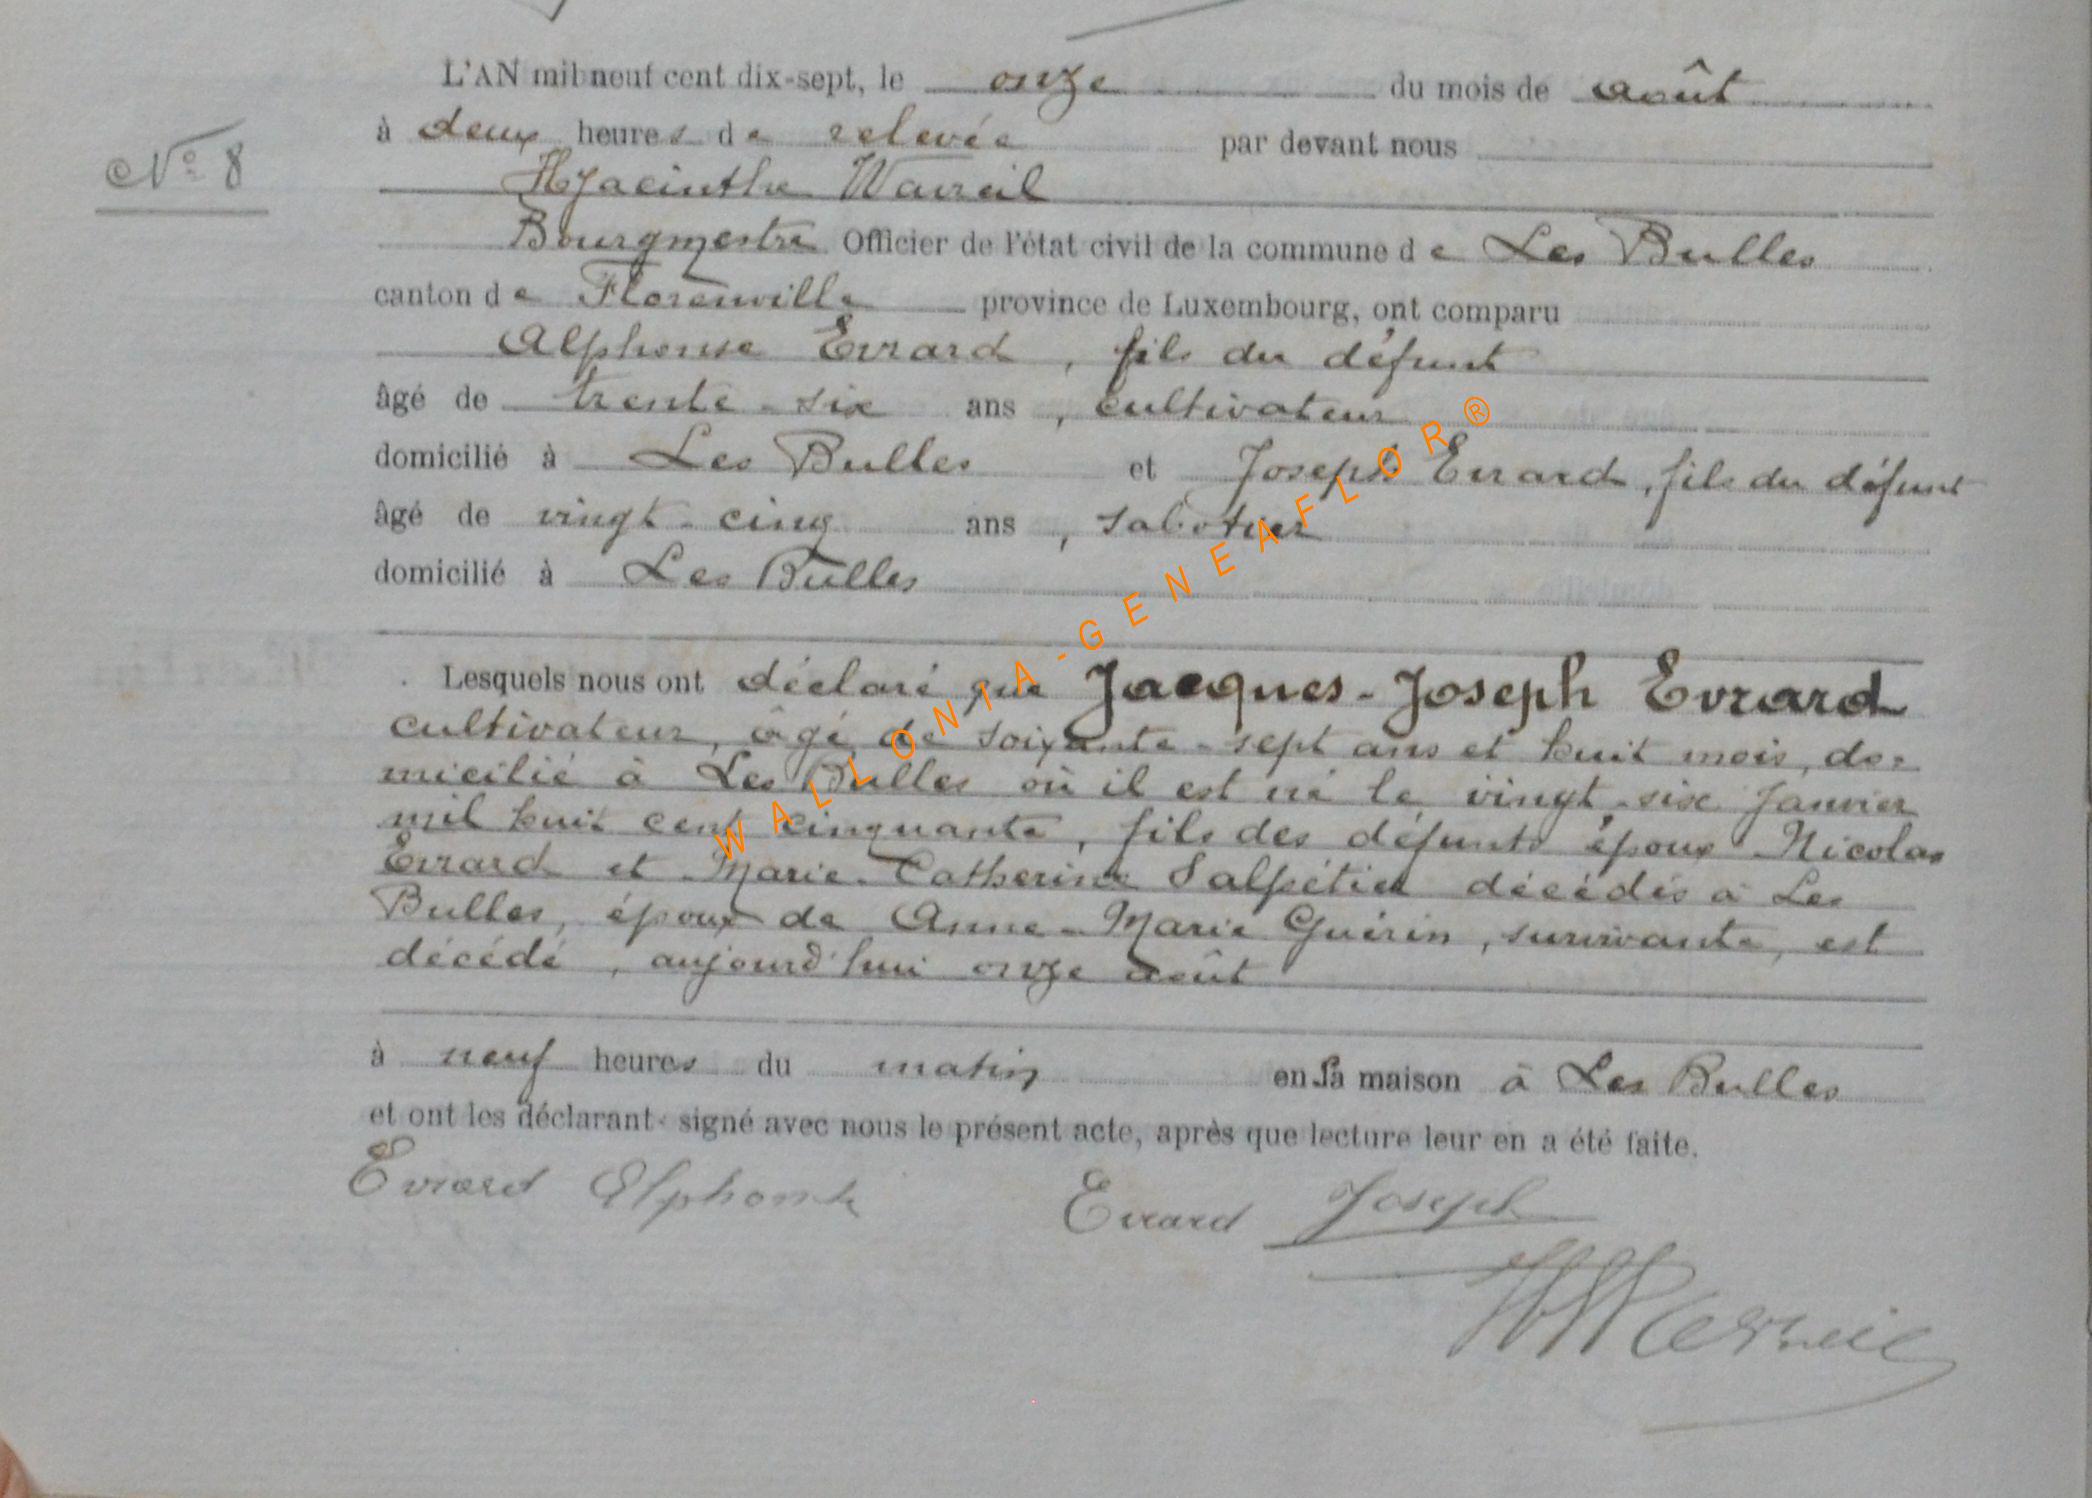 L'AN mil neuf cent dix-sept, le onze du mois de août
à deux heures de relevée par devant nous
N° 8
Hyacinthe Wavreil
Bourgmestre Officier de l'état civil de la commune de Les Bulles
canton de Florenville province de Luxembourg, ont comparu
Alphonse Evrard, fils du défunt
âgé de trente-six ans, cultivateur
domicilié à Les Bulles et Joseph Evrard, fils du défunt
âgé de vingt-cinq ans, sabotier
domicilié à Les Bulles
Lesquels nous ont déclaré que Jacques-Joseph Evrard
cultivateur, âgé de soixante-sept ans et huit mois, do-
micilié à Les Bulles où il est né le vingt-six Janvier
mil huit cent cinquante, fils des défunts époux Nicolas
Evrard et Marie-Catherine Salpétier décédés à Les
Bulles, époux de Anne-Marie Guérin, survivante, est
décédé, aujourd'hui onze août
à neuf heures du matin en sa maison à Les Bulles
et ont les déclarant signé avec nous le présent acte, après que lecture leur en a été faite.
Evrard Alphonse Evrard Joseph
HWavreil
WALLONIA-GENEAFLOR®